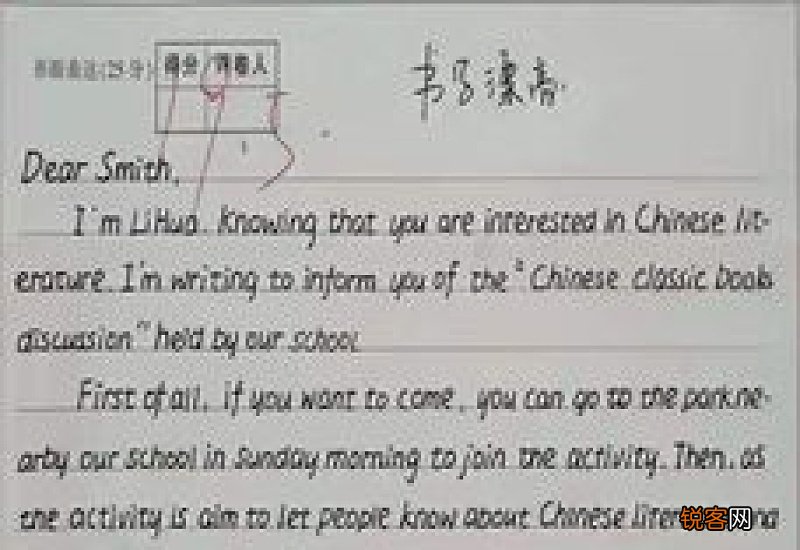 书面表达(25分) 得分 评卷人
书写漂亮.
Dear Smith,
I'm LiHua. Knowing that you are interested in Chinese lit-
erature. I'm writing to inform you of the "Chinese classic books
discussion" held by our school
First of all, if you want to come, you can go to the park ne-
arby our school in Sunday morning to join the activity. Then, as
the activity is aim to let people know about Chinese liter
锐客网